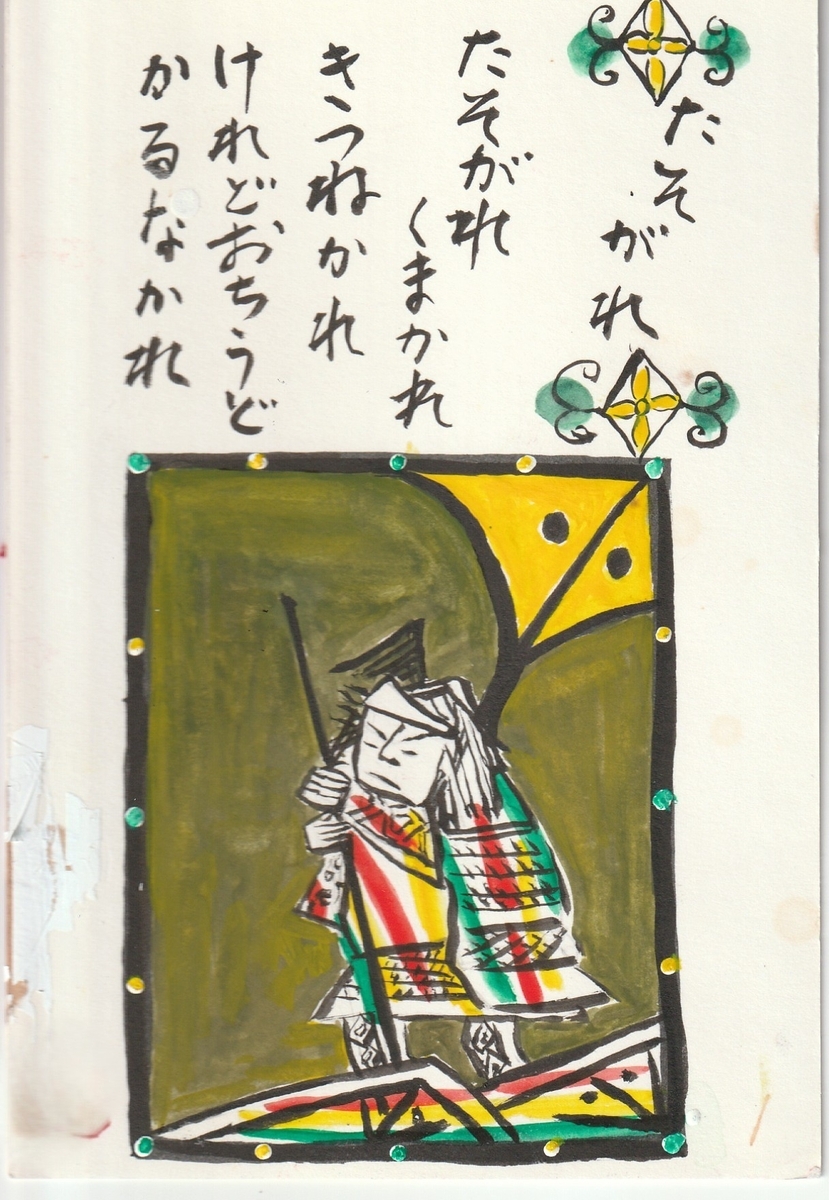 たそがれ
たそがれ
くまかれ
きつねかれ
けれどおちうど
かるなかれ